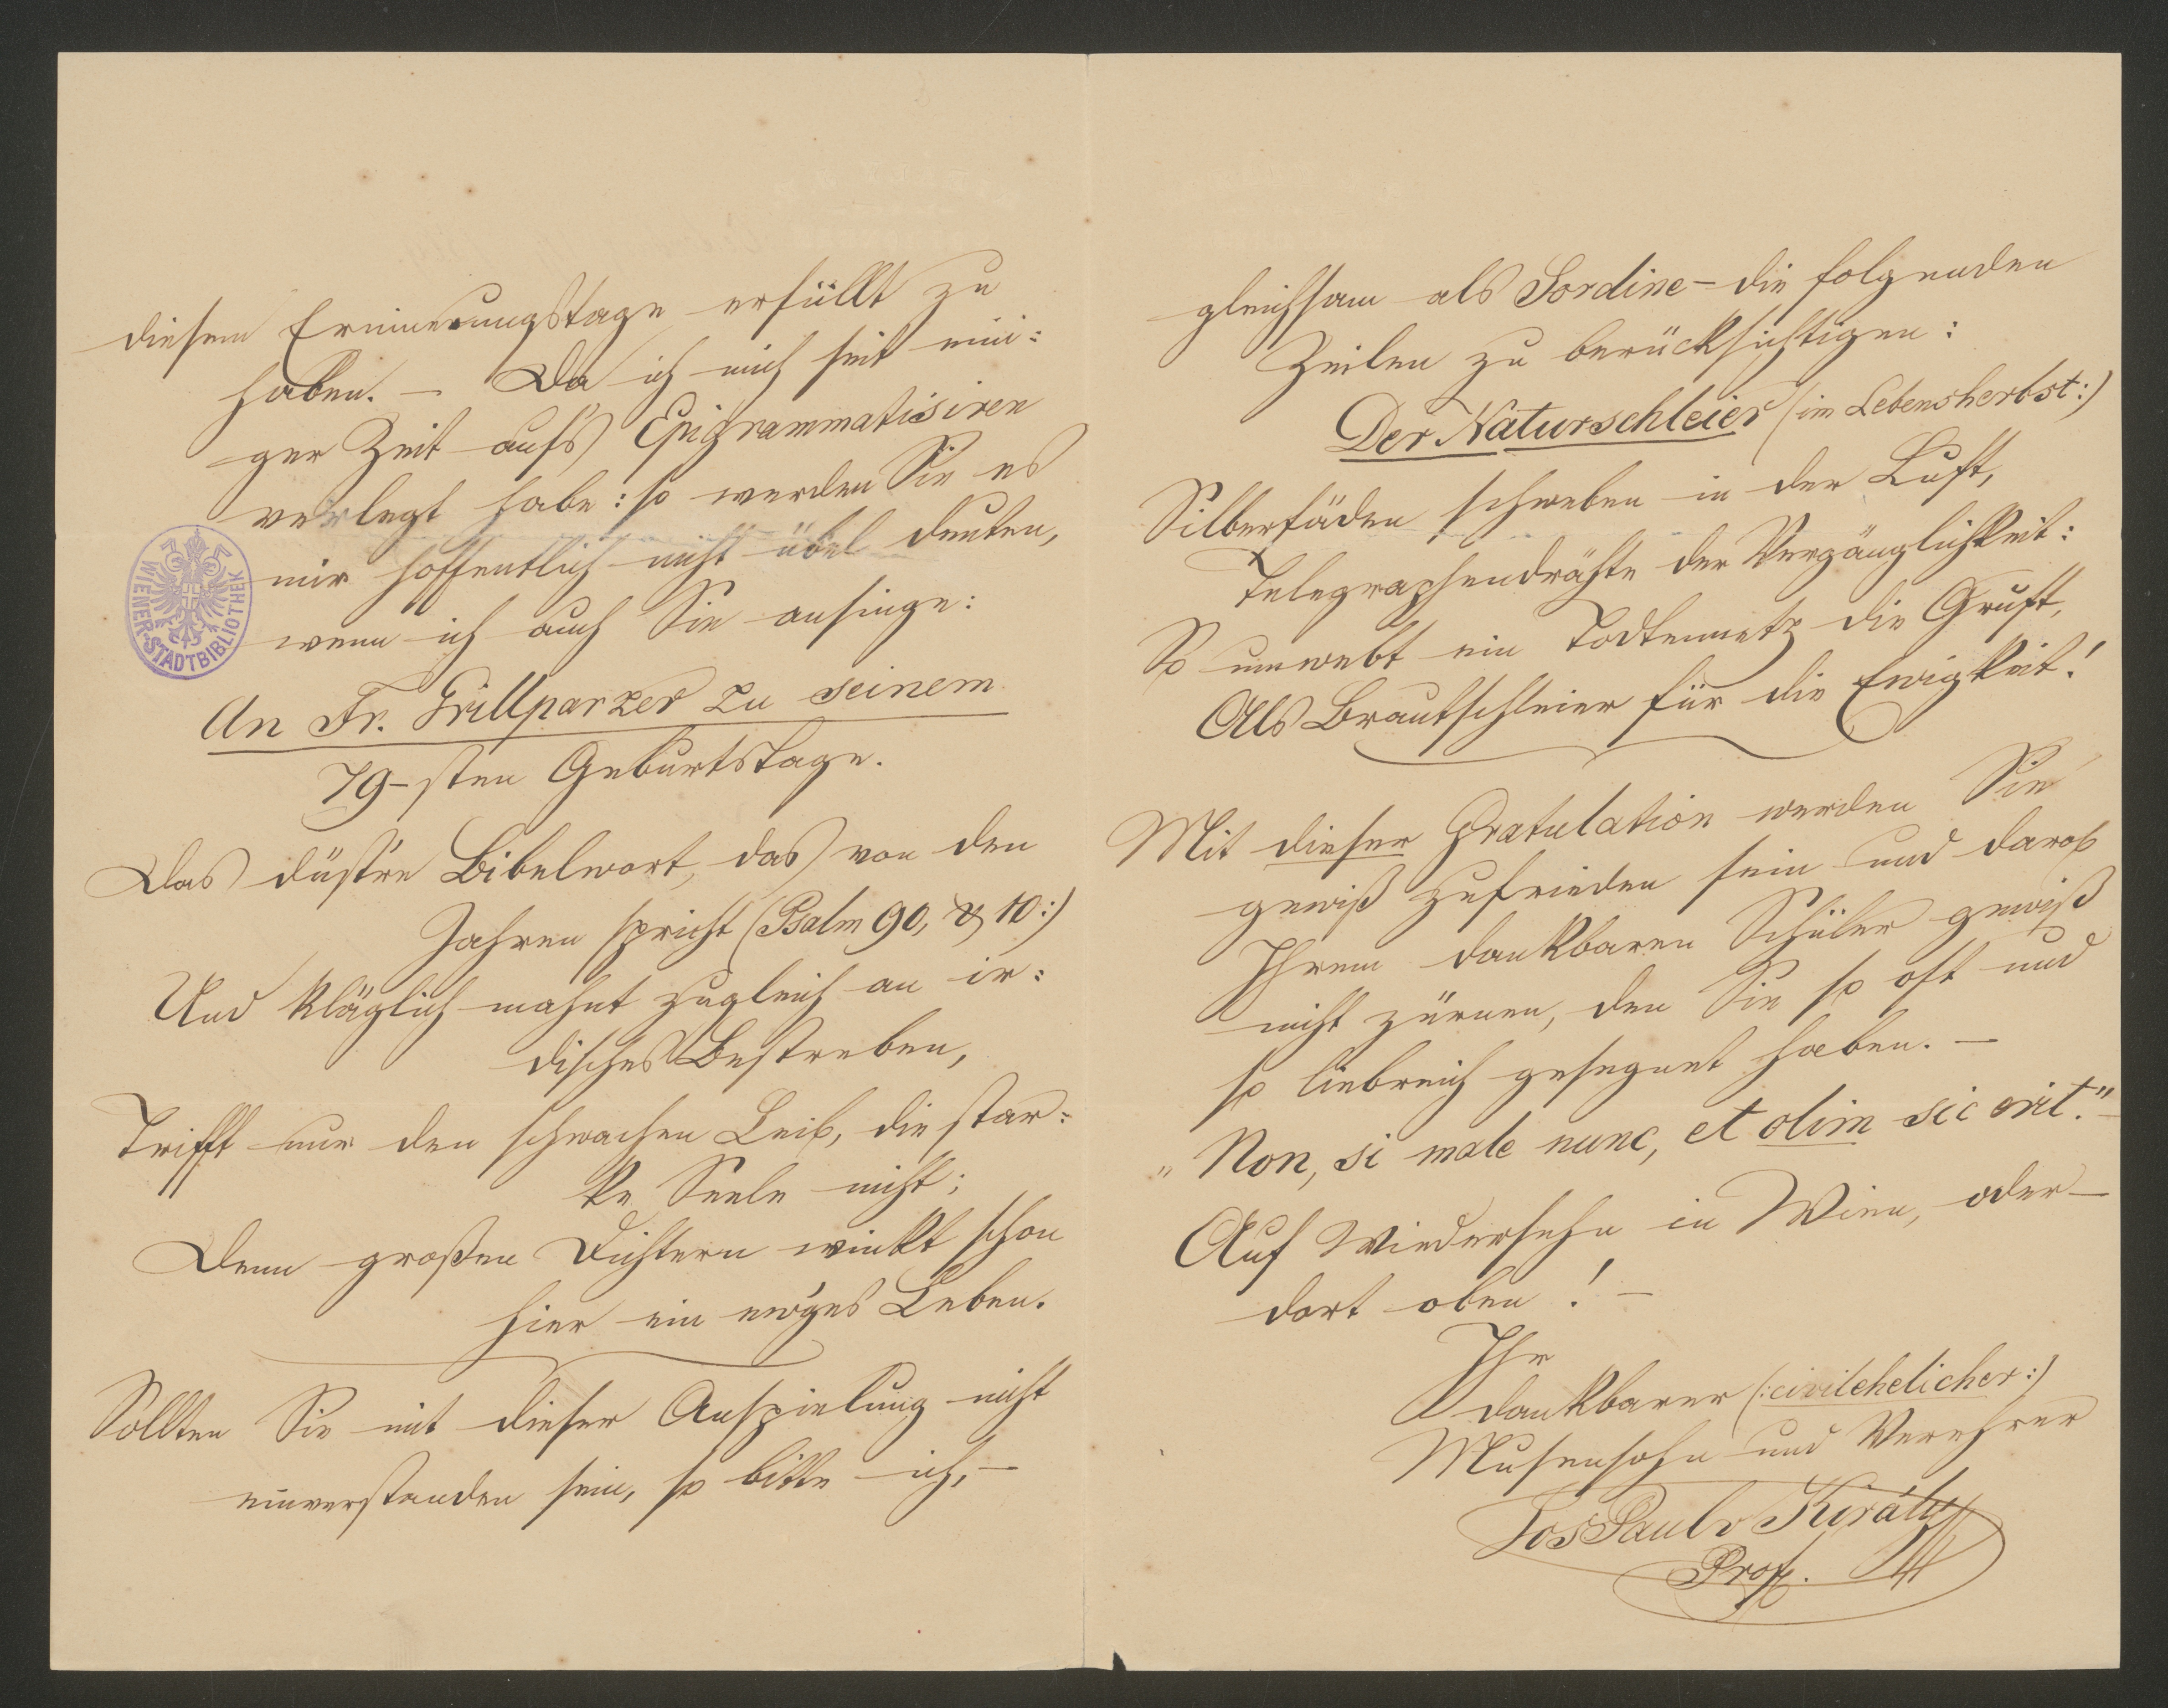 diesem Erinnerungstage erfüllt zu
haben. – Da ich mich seit eini:
ger Zeit aufs Epigrammatisiren
verlegt habe: so werden Sie es
mir hoffentlich nicht übel deuten,
wenn ich auch Sie ansinge:
An Fr. Grillparzer zu seinem
79-sten Geburtstage.
Das düst're Bibelwort, das von den
Jahren spricht (Psalm 90, V 10:)
Und kläglich mahnt zugleich an ir:
disches Bestreben,
Trifft nur den schwachen Leib, die star:
ke Seele nicht;
Denn großen Dichtern winkt schon
hier ein ew'ges Leben.
Sollten Sie mit dieser Anspielung nicht
einverstanden sein, so bitte ich, –
WIENER-STADTBIBLIOTHEK
gleichsam als Sordine – die folgenden
Zeilen zu berücksichtigen:
Der Naturschleier (im Lebensherbst:)
Silberfäden schweben in der Luft,
Telegraphendrähte der Vergänglichkeit:
So umwebt ein Todtennetz die Gruft,
Als Brautschleier für die Ewigkeit!
Mit dieser Gratulation werden Sie
gewiß zufrieden sein und darob
Ihrem dankbaren Schüler gewiß
nicht zürnen, den Sie so oft und
so liebreich gesegnet haben. –
„Non, si male nunc, et olim sic erit." –
Auf Wiedersehn in Wien, oder –
dort oben! –
Ihr
dankbarer (:civilehelicher:)
Musensohn und Verehrer
Jos Paul v Király
Prof.